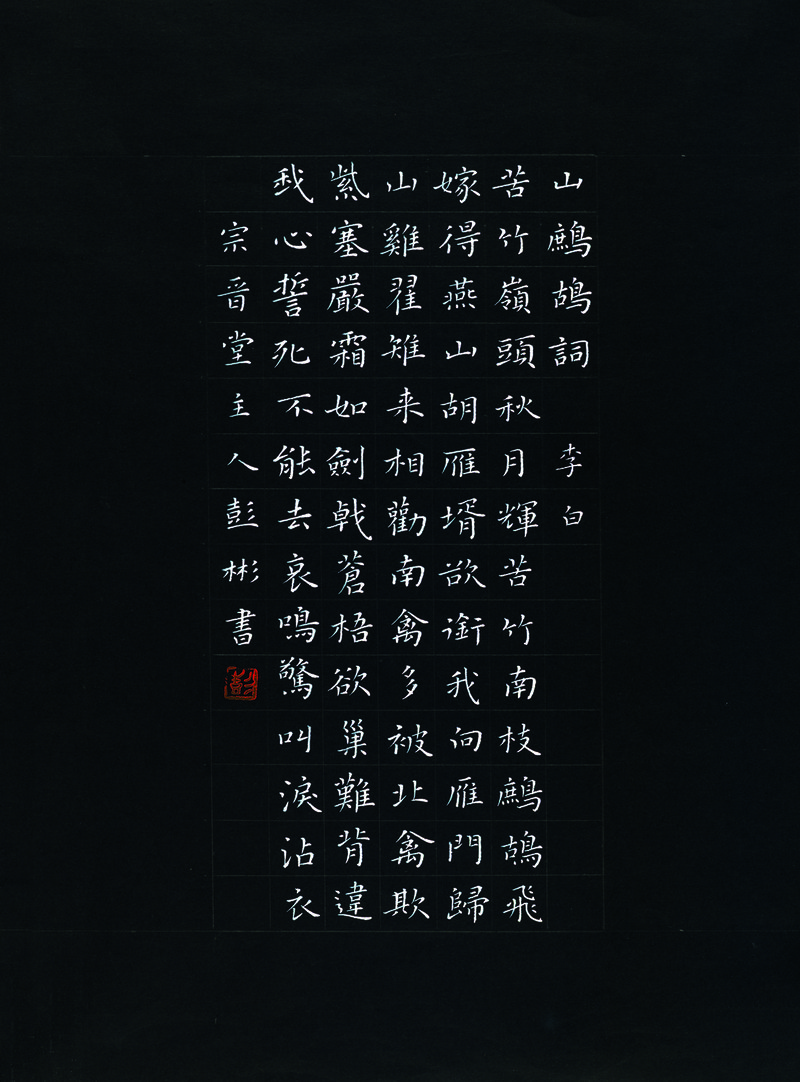 山鷓鴣詞 李白
苦竹嶺頭秋月輝苦竹南枝鷓鴣飛
嫁得燕山胡雁壻欲銜我向雁門歸
山雞翟雉来相勸南禽多被北禽欺
紫塞嚴霜如劍戟蒼梧欲巢難背違
我心誓死不能去哀鳴驚叫淚沾衣
宗晋堂主人彭彬書